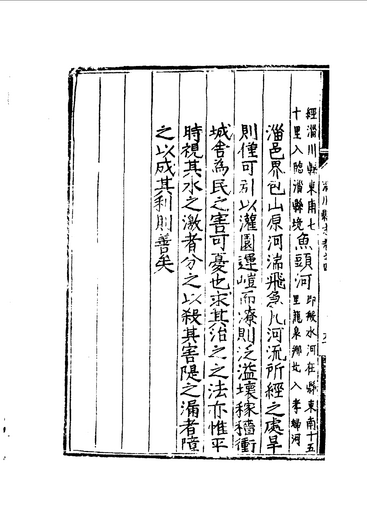 經淄川縣東南七
十里入臨淄縣境
魚頭河
即般水河在縣東南十五
里龍泉鄉北入孝婦河
淄邑界包山原河湍飛急凡河流所經之處旱
則僅可引以灌園運磑而潦則泛溢壞稼穡衝
城舍為民之害可憂也求其治之之法亦惟平
時視其水之激者分之以殺其害隄之漏者障
之以成其利則善矣